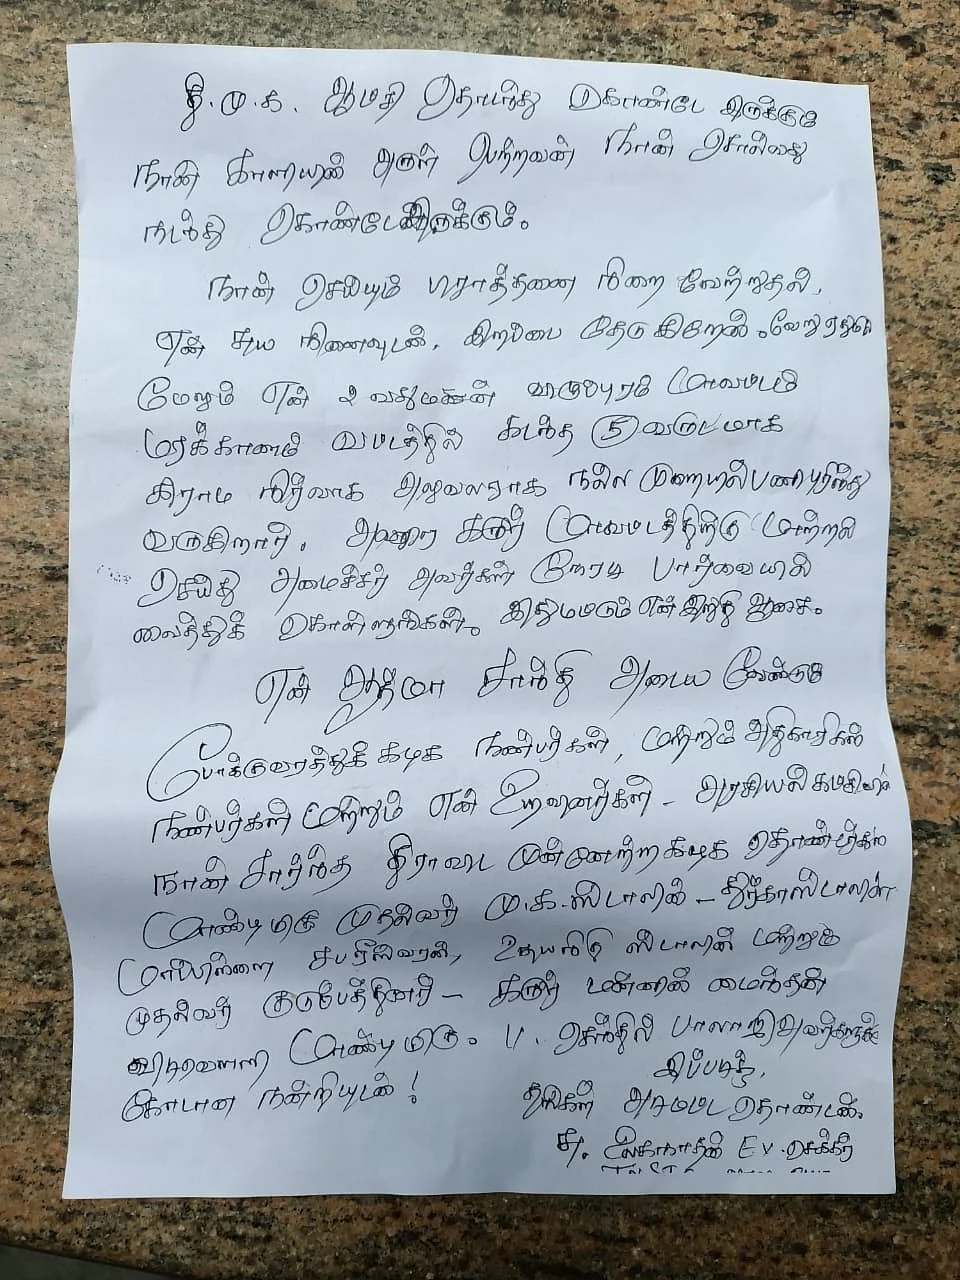 தி.மு.க. ஆட்சி தொடர்ந்து கொண்டே இருக்கும்
நான் காளியின் அருள் பெற்றவன் நான் சொல்வது
நடந்து கொண்டேஇருக்கும்.
நான் செய்யும் பிராத்தனை நிறை வேற்றுதல்,
என் சுய நினைவுடன், இறப்பை தேடுகிறேன். வேறு
மேலும் என் 2 வதுமகன் விழுப்புரம் மாவட்டம்
மரக்காணம் வட்டத்தில் கடந்த 5 வருடமாக
கிராம நிர்வாக அலுவலராக நல்ல முறையில்பணிபுரிந்து
வருகிறார். அவரை கரூர் மாவட்டத்திற்கு மாற்றல்
செய்து அமைச்சர் அவர்கள் நேரடி பார்வையில்
வைத்துக் கொள்ளுங்கள். இதுமட்டும் என் இறுதி ஆசை.
என் ஆத்மா சாந்தி அடைய வேண்டும்
போக்குவரத்துக் கழக நண்பர்கள், மற்றும் அதிகாரிகள்
நண்பர்கள் மற்றும் என் உறவினர்கள் - அரசியல் கட்சியில்
நான் சார்ந்த திராவிட முன்னேற்ற கழக தொண்டர்கள்
மாண்புமிகு முதல்வர் மு.க.ஸ்டாலின் - துர்காஸ்டாலின்
மாப்பிள்ளை சபரீஸ்வரன், உதயநிதி ஸ்டாலின் மற்றும்
முதல்வர் குடும்பத்தினர் - கரூர் மண்ணின் மைந்தன்
விடிவெள்ளி மாண்புமிகு. V. செந்தில் பாலாஜிஅவர்களுக்கு
கோடான நன்றியுடன்! இப்படிக்கு,
தங்கள் அடிமட்ட தொண்டன்.
EV.